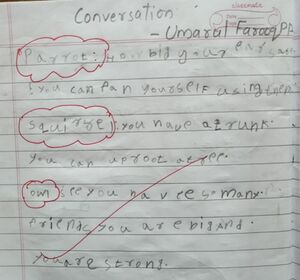 Conversation
classmate
- Umarul Farooq PP
Parrot: How big your ear
! you can fan yourself using them
Squirrel: you have a trunk.
you can uproot a tree.
Own see you have so many.
friends you are big and.
you are strong.